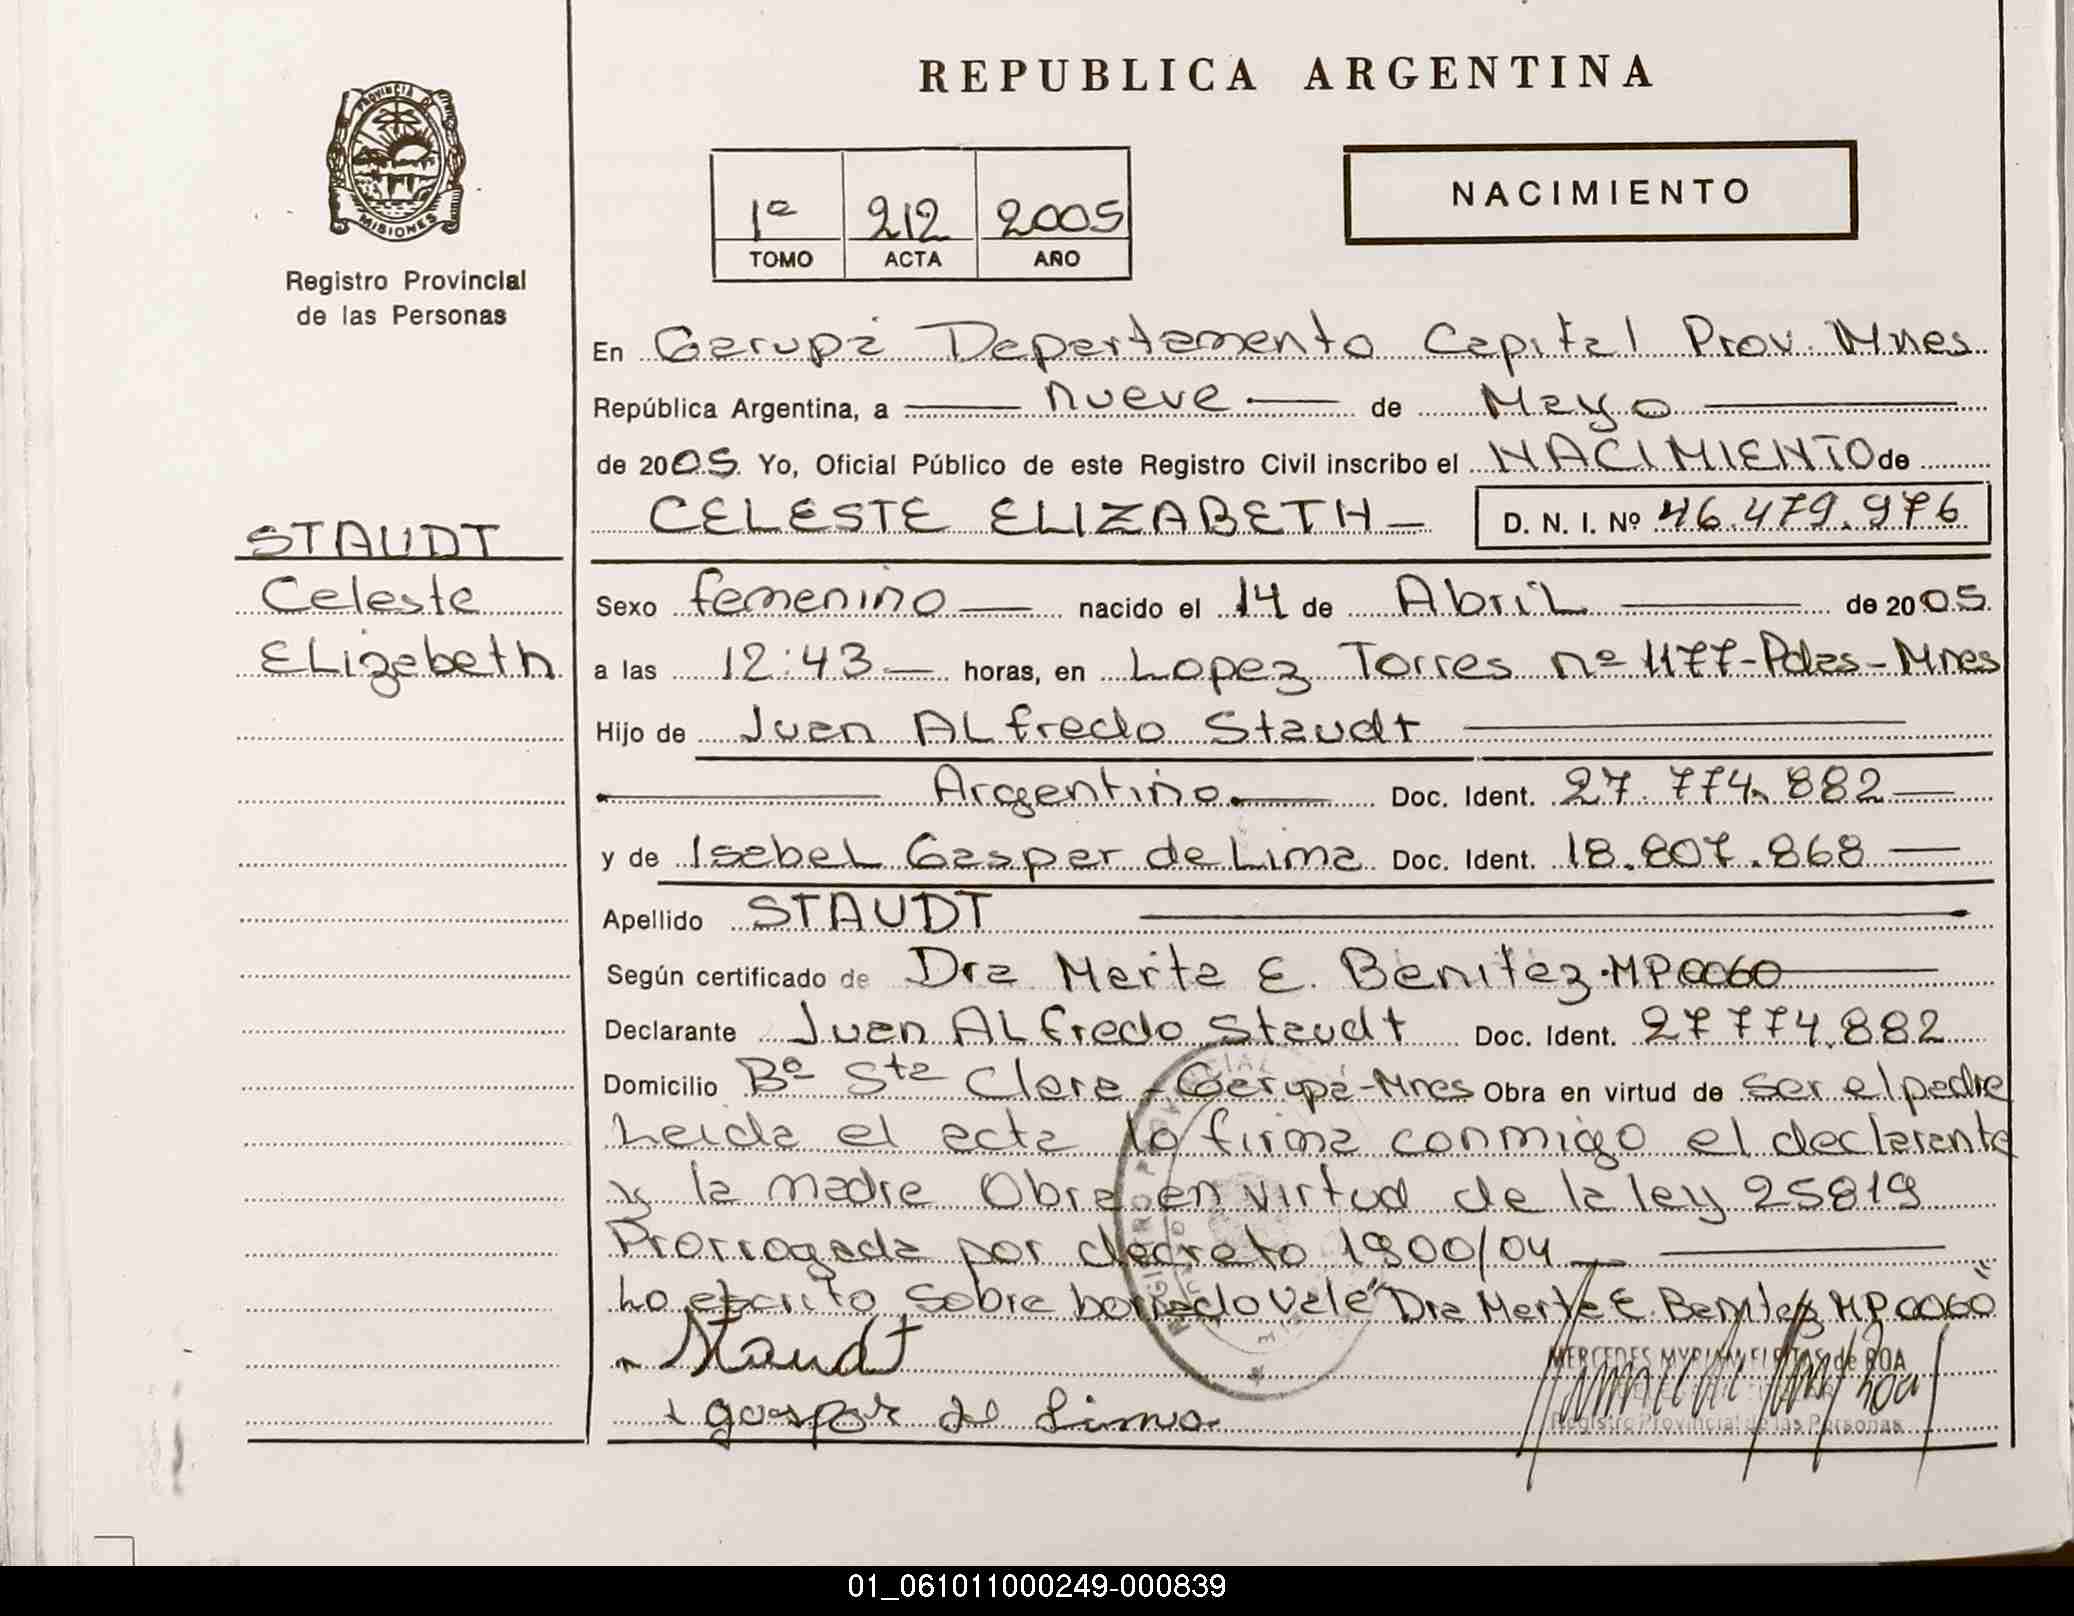 REPUBLICA ARGENTINA
PROVINCIA DE MISIONES
Registro Provincial
de las Personas
1º 212 2005
TOMO ACTA AÑO
NACIMIENTO
En Garupá Departamento Capital Prov. Mnes
República Argentina, a nueve de Mayo
de 2005. Yo, Oficial Público de este Registro Civil inscribo el NACIMIENTO de
CELESTE ELIZABETH — D. N. I. Nº 46.479.976
STAUDT
Celeste
ELizabeth
Sexo femenino nacido el 14 de AbriL de 2005
a las 12:43 horas, en Lopez Torres nº 1177-Pdas-Mnes
Hijo de Juan ALfredo Staudt
Argentino. Doc. Ident. 27.774.882
y de IsabeL Gaspar de Lima Doc. Ident. 18.807.868
Apellido STAUDT
Según certificado de Dra Marta E. Benitez·MP0060
Declarante Juan ALfredo Staudt Doc. Ident. 27774.882
Domicilio Bº Sta Clara-Garupá-Mnes Obra en virtud de ser el padre
Leida el acta la firma conmigo el declarante
y la madre Obra en virtud de la ley 25819
Prorrogada por decreto 1900/04
Lo escrito sobre borrado Vale "Dra Marta E. Benitez MP 0060"
Staudt
gaspar de Lima
MERCEDES MYRIAM FLEITAS de ROA
Registro Provincial de las Personas
01_061011000249-000839